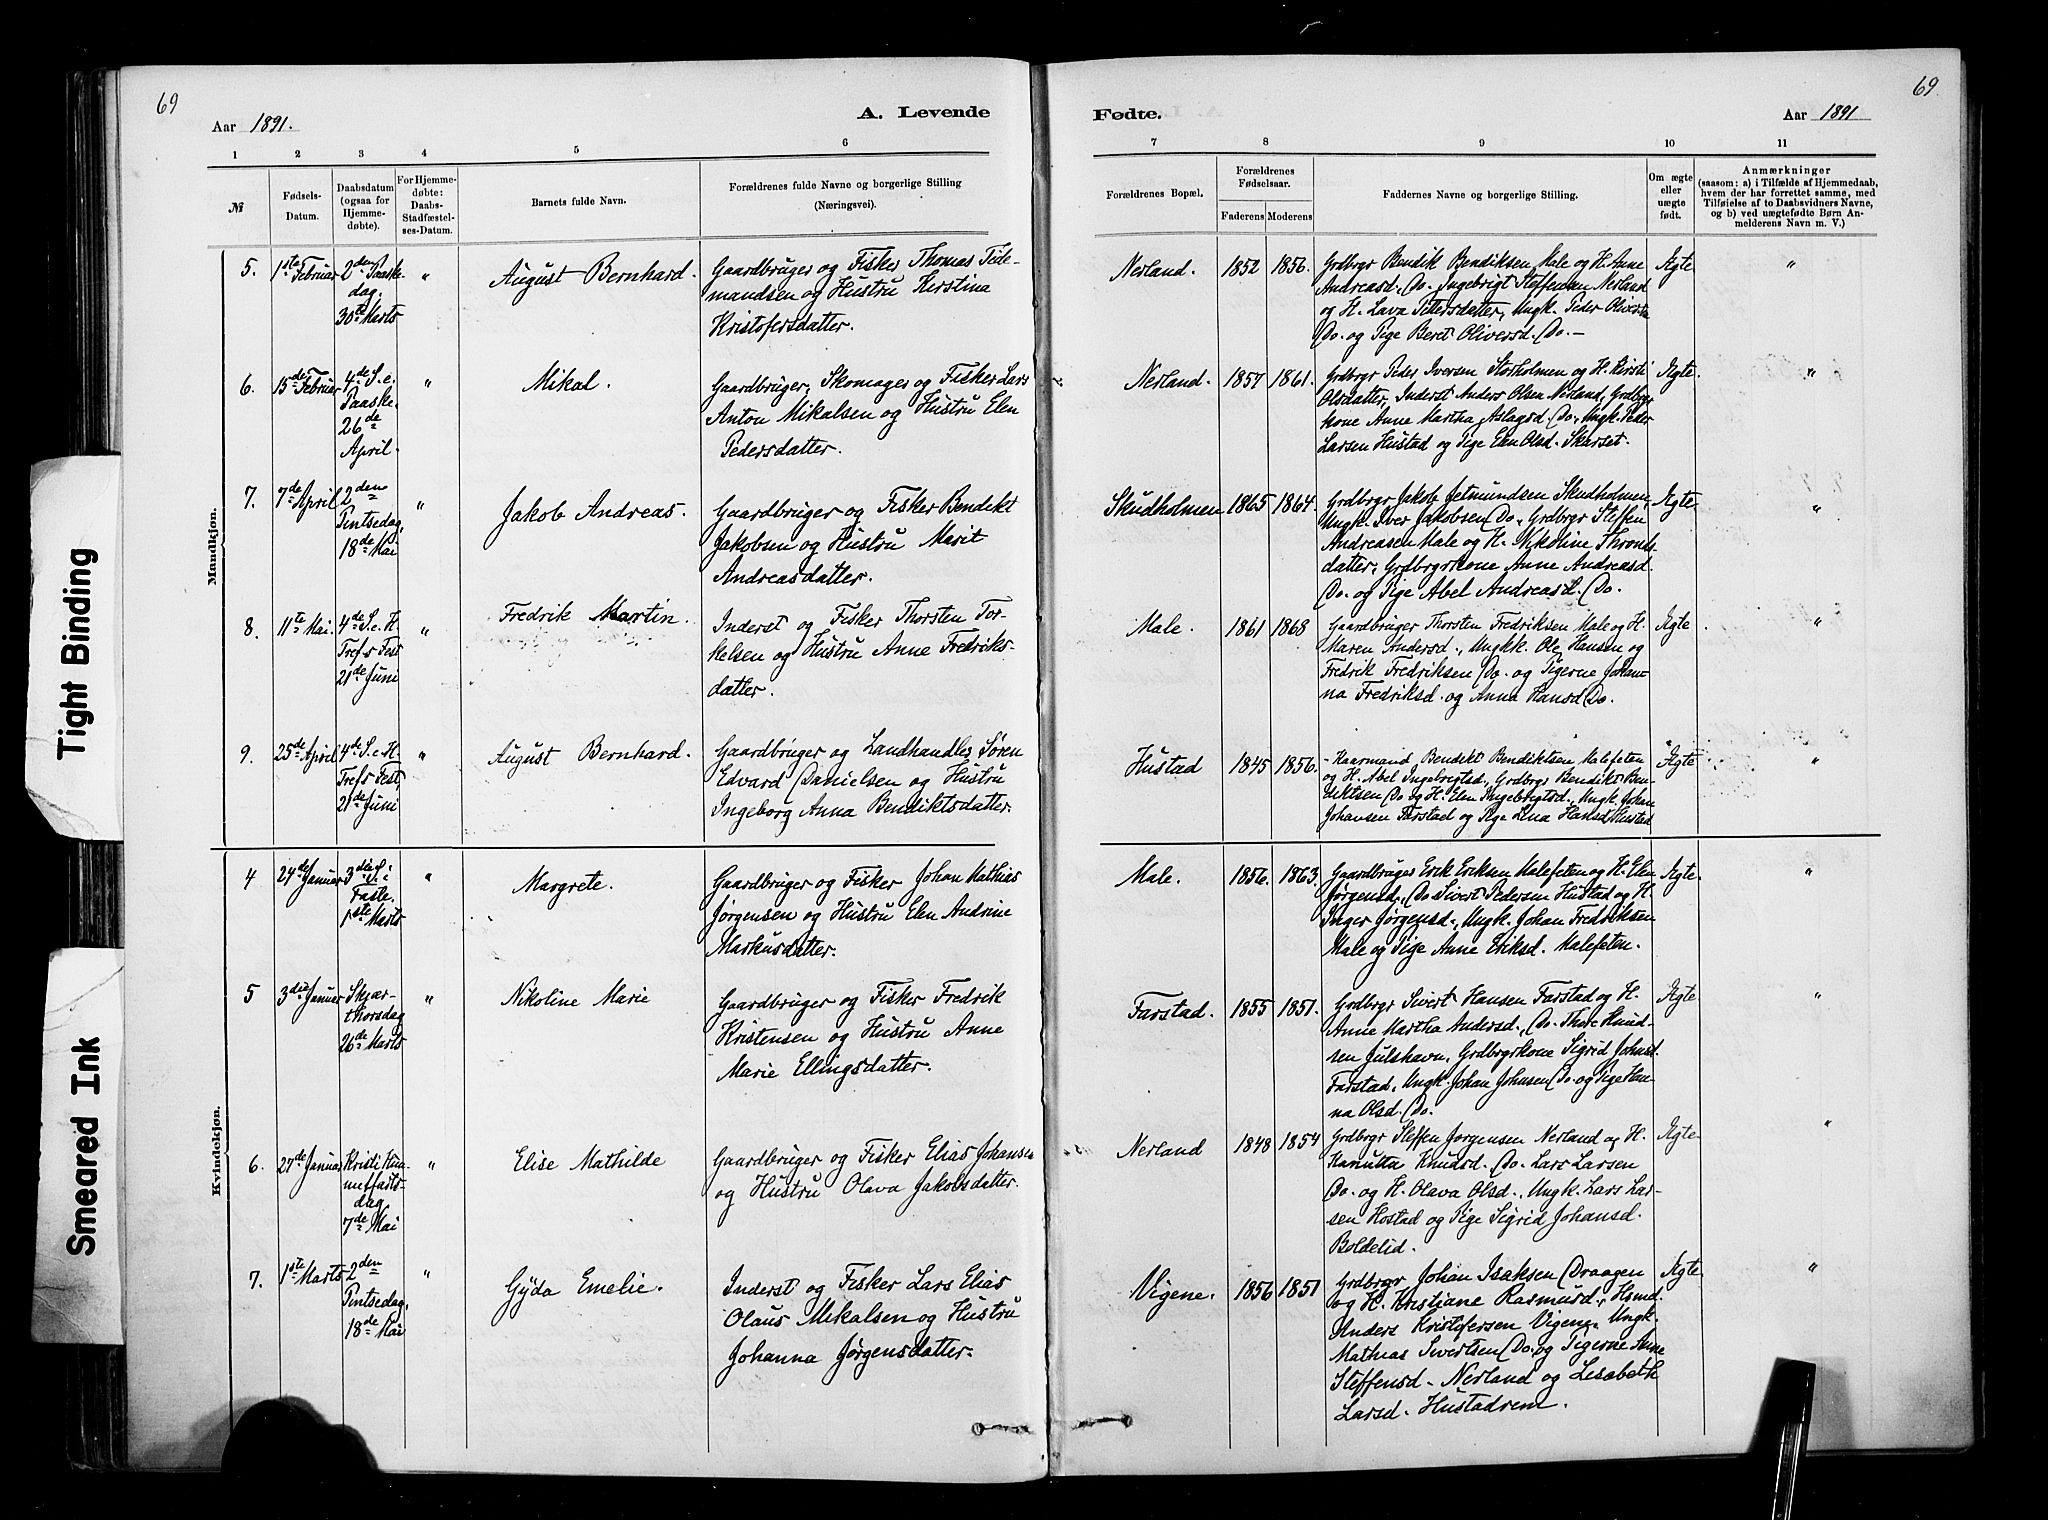 69
69.
Aar 1891.
A. Levende
Fødte.
Aar 1891
1 2 3 4 5 6
7 8 9 10 11
№
Fødsels-
Datum.
Daabsdatum
(ogsaa for
Hjemme-
døbte).
For Hjemme-
døbte:
Daabs-
Stadfæstel-
ses-Datum.
Barnets fulde Navn.
Forældrenes fulde Navne og borgerlige Stilling
(Næringsvei).
Forældrenes Bopæl.
Forældrenes
Fødselsaar.
Faderens Moderens
Faddernes Navne og borgerlige Stilling.
Om ægte
eller
uægte
født.
Anmærkninger
(saasom: a) i Tilfælde af Hjemmedaab,
hvem der har forrettet samme, med
Tilføielse af to Daabsvidners Navne,
og b) ved uægtefødte Børn An-
melderens Navn m. V.)
Mandkjøn.
5.
1ste Februar
2den Paaske-
dag,
30te Marts
"
August Bernhard.
Gaardbruger og Fisker Thomas Tide-
mandsen og Hustru Kerstina
Kristofersdatter.
Nerland.
1852
1856.
Grdbrgr Bendik Bendiksen Male og H. Anne
Andreasd., Do. Ingebrigt Steffensen Nerland
og H. Lava Pettersdatter, Ungk. Peder Oliversen
Do. og Pige Beret Oliversd. Do. –
Ægte
"
6.
15de Februar
4de S. e.
Paaske.
26de
April.
"
Mikal.
Gaardbruger, Skomager og Fisker Lars
Anton Mikalsen og Hustru Elen
Pedersdatter.
Nerland.
1857
1861.
Grdbrgr Peder Iversen Storholmen og H. Kirsti
Olsdatter, Inderst Anders Olsen Nerland, Grdbrgr
kone Anne Martha Aslagsd. Do., Ungk. Peder
Larsen Hustad og Pige Elen Olsd. Skarset.
Ægte
"
7.
7de April
2den
Pintsedag,
18de Mai
"
Jakob Andreas.
Gaardbruger og Fisker Bendikt
Jakobsen og Hustru Marit
Andreasdatter.
Skudholmen
1865
1864.
Grdbrgr Jakob Jetmundsen Skudholmen,
Ungk. Iver Jakobsen Do., Grdbrgr Steffen
Andreasen Male og H. Nikoline Thronds-
datter, Grdbrgrkone Anne Andreasd.
Do. og Pige Abel Andreasd. Do.
Ægte
"
8.
11te Mai.
4de S. e. H.
Tref's Fest
21de Juni
"
Fredrik Martin.
Inderst og Fisker Thorsten Tor-
kelsen og Hustru Anne Fredriks-
datter.
Male.
1861
1868
Gaardbruger Thorsten Fredriksen Male og H.
Maren Andersd., Ungkk. Ole Hansen og
Fredrik Fredriksen Do. og Pigerne Johan-
na Fredriksd. og Anna Hansd. Do.
Ægte
"
9.
25de April
4de S. e. H.
Tref's Fest,
21de Juni
"
August Bernhard.
Gaardbruger og Landhandler Søren
Edvard Danielsen og Hustru
Ingeborg Anna Bendiktsdatter.
Hustad
1845
1856.
Kaarmand Bendikt Bendiktsen Malefeten
og H. Abel Ingebrigtsd., Grdbrgr Bendikt Ben-
diktsen Do og H. Elen Ingebrigtsd., Ungk. Johan
Johansen Farstad og Pige Lina Hansd. Hustad
Ægte
"
Kvindekjøn.
4
24de Januar
3die S. i
Faste.
1ste Marts
"
Margrete.
Gaardbruger og Fisker Johan Mathias
Jørgensen og Hustru Elen Andrine
Markusdatter.
Male.
1856.
1863.
Gaardbruger Erik Eriksen Malefeten og H. Elen
Jørgensd., Do. Sivert Pedersen Hustad og H.
Inger Jørgensd., Ungk. Johan Fredriksen
Male og Pige Anne Eriksd. Malefeten.
Ægte.
"
5
3die Januar
Skjær-
thorsdag
26de Marts
"
Nikoline Marie
Gaardbruger og Fisker Fredrik
Kristensen og Hustru Anne
Marie Ellingsdatter.
Farstad.
1855
1851.
Grdbrgr Sivert Hansen Farstad og H.
Anne Martha Andersd., Do. Thore Knud-
sen Julshavn, Grdbrgrkone Sigrid Johnsd.
Farstad, Ungk. Johan Johnsen Do. og Pige Han-
na Olsd. Do.
Ægte
"
6.
27de Januar
Kristi Him-
melfarts-
dag
7de Mai
"
Elise Mathilde
Gaardbruger og Fisker Elias Johansen
og Hustru Olava Jakobsdatter.
Nerland
1848
1854
Grdbrgr Steffen Jørgensen Nerland og H.
Kanutta Knudsd. Do. Lars Larsen
Do. og H. Olava Olsd., Ungk. Lars Lar-
sen Hostad og Pige Sigrid Johansd.
Boldelid.
Ægte
"
7.
1ste Marts
2den
Pintsedag,
18de Mai
"
Gyda Emelie.
Inderst og Fisker Lars Elias
Olaus Mikalsen og Hustru
Johanna Jørgensdatter.
Vigene.
1856
1851
Grdbrgr Johan Isaksen Draagen
og H. Kristiane Rasmusd., Hsmd.
Anders Kristifersen Vigene, Ungk.
Mathias Sivertsen Do. og Pigerne Anne
Steffensd. Nerland og Lisabeth
Larsd. Hustadrem.
Ægte
"
Tight Binding
Smeared Ink